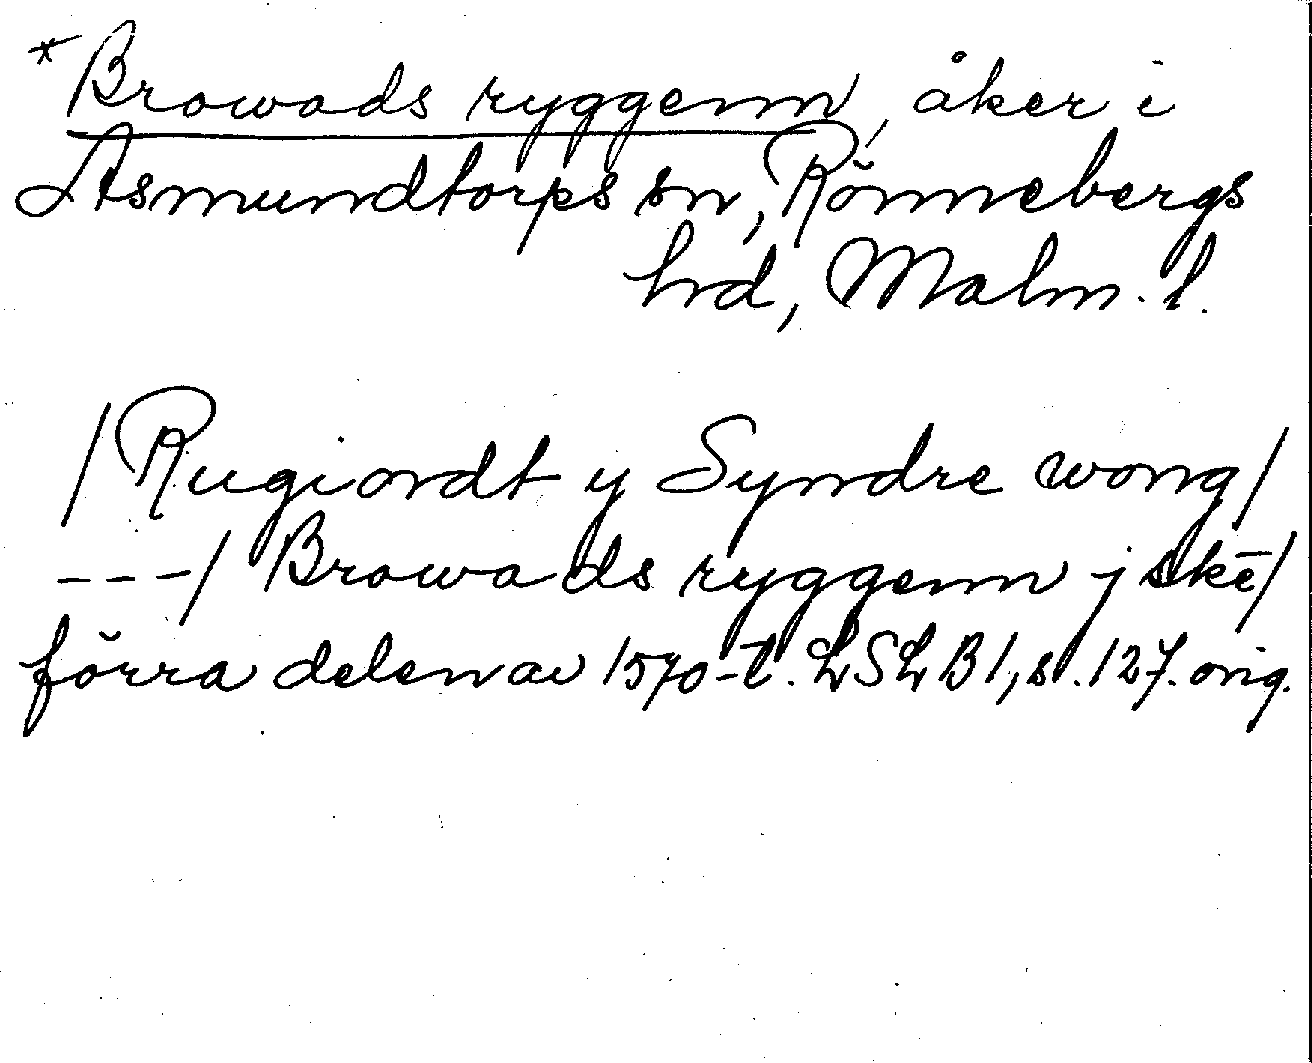 *Browads ryggenn, åker i
Asmundtorps sn, Rönnebergs
hrd, Malm. l.
/Rugiordt y Syndre wong/
---/ Browads ryggenn j skē/
förra delen av 1570-t. LSLB1, s. 127. orig.